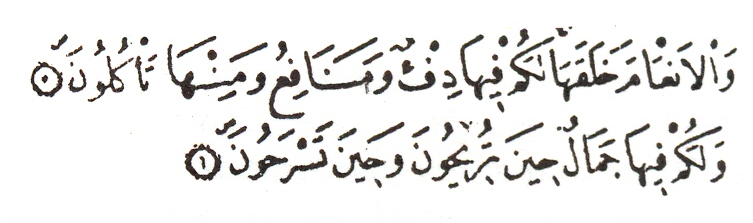 وَالْاَنْعَامَ خَلَقَهَا لَكُمْ فِيهَا دِفْءٌ وَمَنَافِعُ وَمِنْهَا تَأْكُلُونَ ۝٥
وَلَكُمْ فِيهَا جَمَالٌ حِينَ تُرِيحُونَ وَحِينَ تَسْرَحُونَ ۝٦